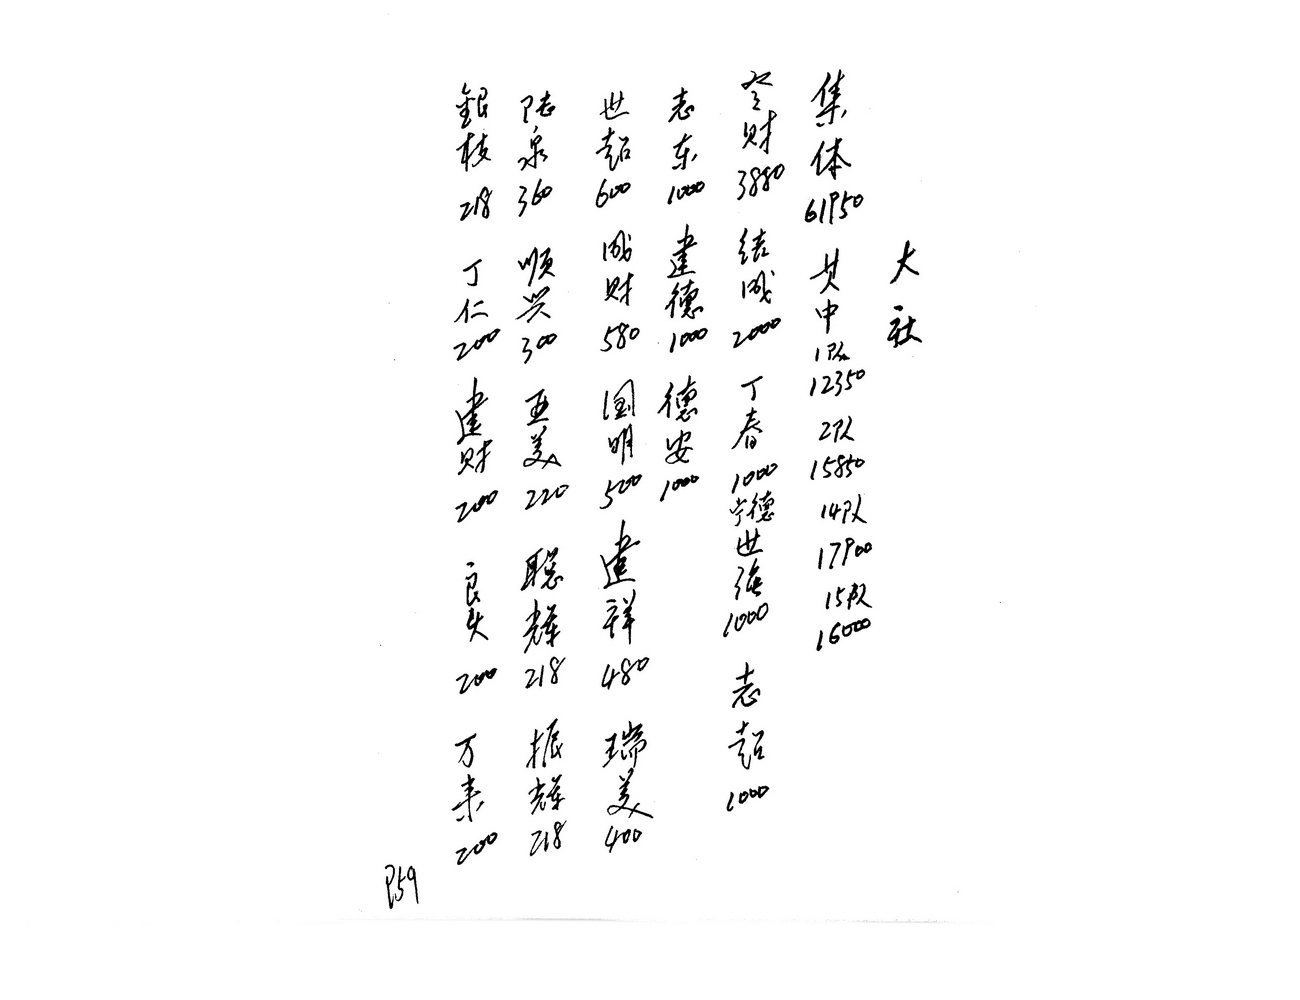 大社
集体 61950 其中 1队 12350 2队 15850 14队 17900 15队 16000
财 3880 结成 2000 丁春 1000 宁德 世强 1000 志超 1000
志东 1000 建德 1000 德安 1000
世超 600 成财 580 国明 500 建祥 480 瑞美 400
陆泉 360 顺兴 300 亚美 220 聪辉 218 振辉 218
銀枝 218 丁仁 200 建财 200 良 200 万来 200
P59